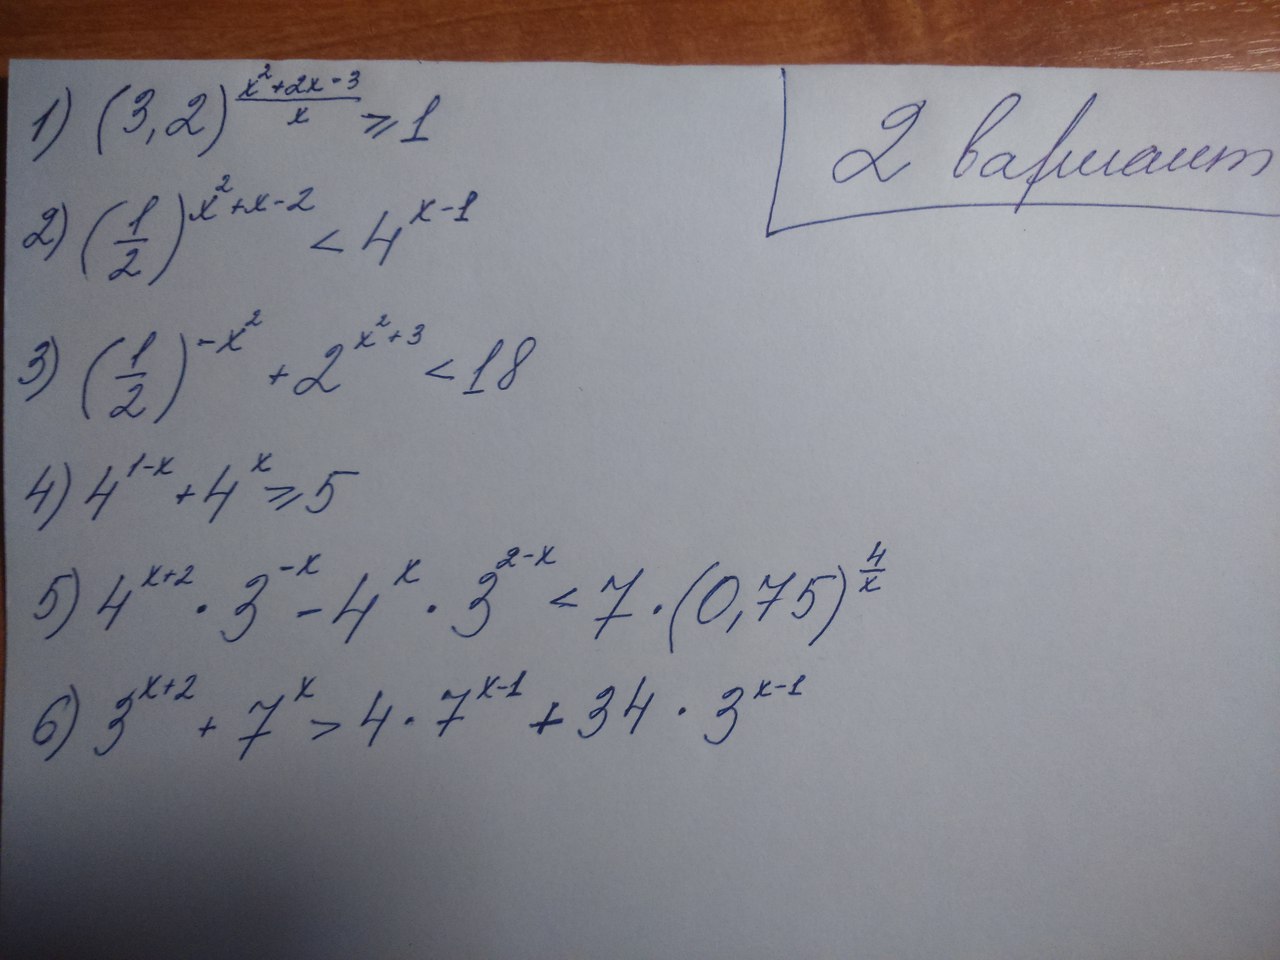 2 вариант
1) (3,2)^((x²+2x-3)/x) ⩾ 1
2) (1/2)^(x²+x-2) < 4^(x-1)
3) (1/2)^(-x²) + 2^(x²+3) < 18
4) 4^(1-x) + 4^x ⩾ 5
5) 4^(x+2) · 3^(-x) - 4^x · 3^(2-x) < 7 · (0,75)^(4/x)
6) 3^(x+2) + 7^x > 4 · 7^(x-1) + 34 · 3^(x-1)